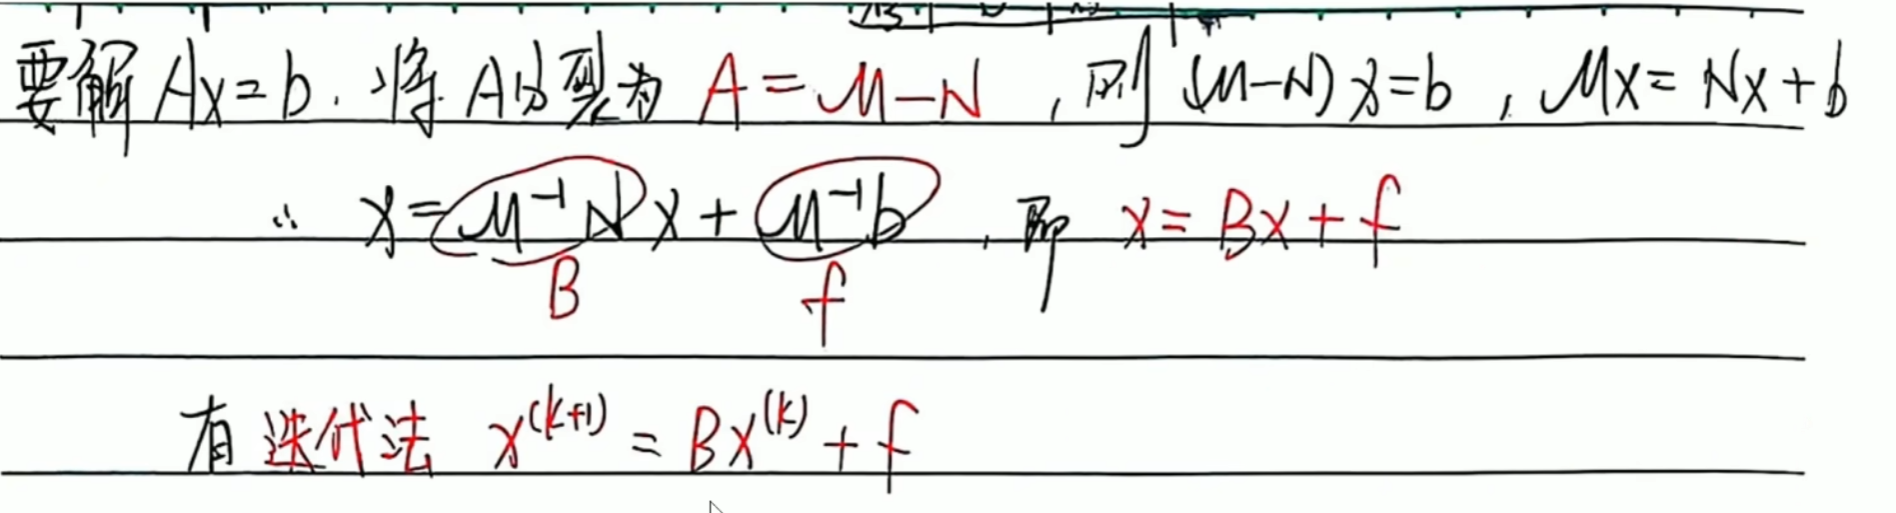 要解 Ax=b. 将 A分裂为 A=M-N, 则 (M-N)x=b, Mx=Nx+b
∴ x=M⁻¹Nx+M⁻¹b, 即 x=Bx+f
B f
有 迭代法 x^(k+1) = Bx^(k) + f